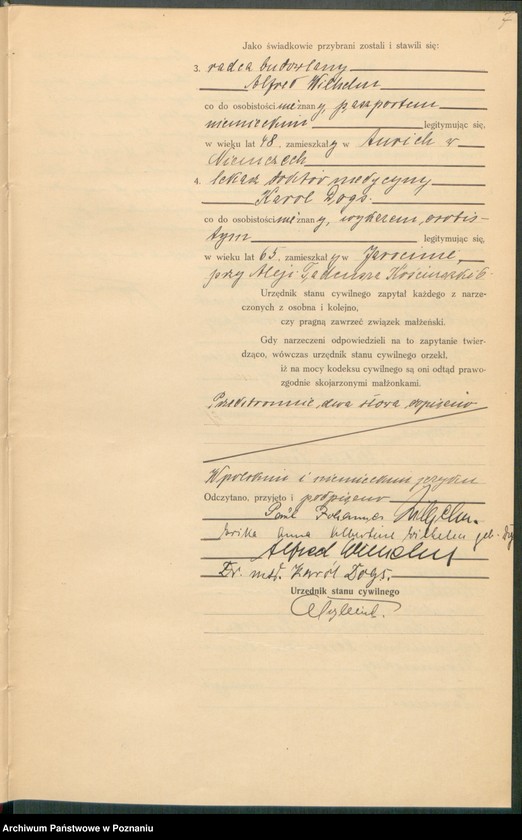 7
Jako świadkowie przybrani zostali i stawili się:
3. radca budowlany
Alfred Wilhelm
co do osobistości nieznany, paszportem
niemieckim legitymując się,
w wieku lat 48, zamieszkały w Aurich w
Niemczech
4. lekarz doktór medycyny
Karol Dogs
co do osobistości nieznany, wykazem osobis-
tym legitymując się,
w wieku lat 65, zamieszkały w Jarocinie,
przy Aleji Tadeusza Kościuszki 6
Urzędnik stanu cywilnego zapytał każdego z narze-
czonych z osobna i kolejno,
czy pragną zawrzeć związek małżeński.
Gdy narzeczeni odpowiedzieli na to zapytanie twier-
dząco, wówczas urzędnik stanu cywilnego orzekł,
iż na mocy kodeksu cywilnego są oni odtąd prawo-
zgodnie skojarzonymi małżonkami.
Przedstronnie dwa słowa dopisano
W polskim i niemieckim języku
Odczytano, przyjęto i podpisano
Paul Johannes Wilhelm.
Erika Anna Albertine Wilhelm geb. Dogs
Alfred Wilhelm
Dr. med. Karól Dogs.
Urzędnik stanu cywilnego
Archiwum Państwowe w Poznaniu